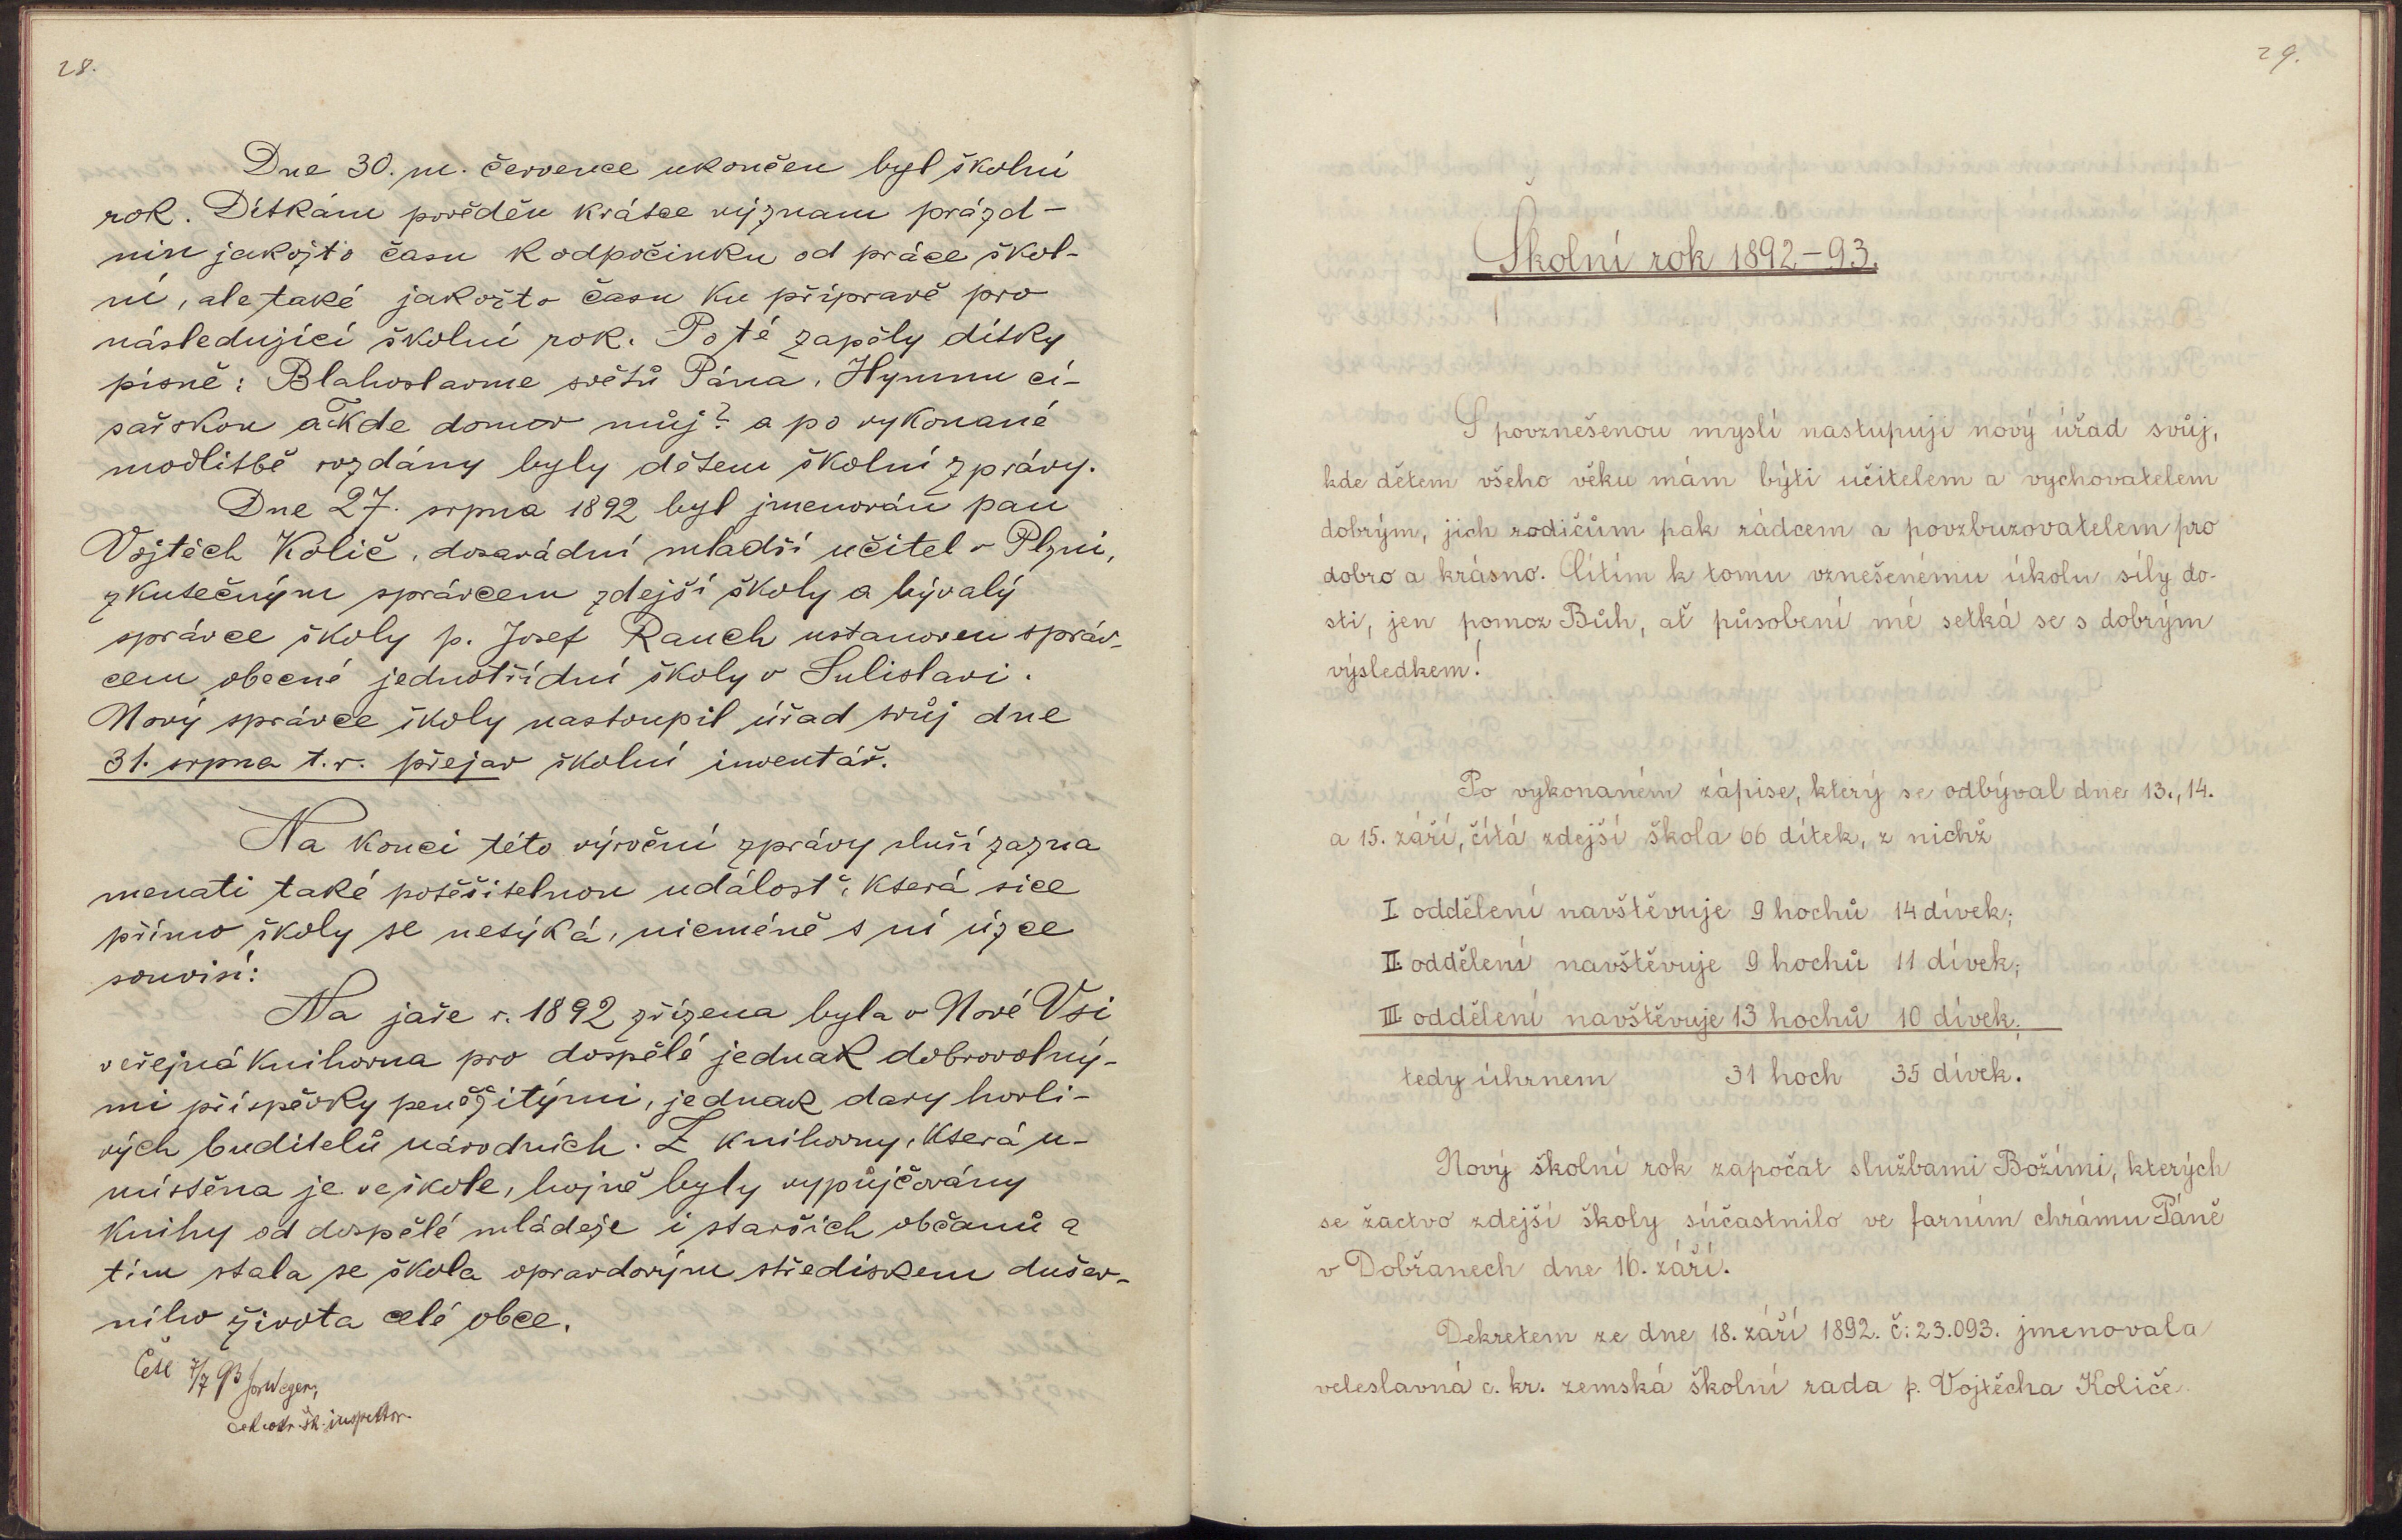 28.
Dne 30. m. července ukončen byl školní
rok. Dítkám pověděn krátce význam prázd-
nin jakožto času k odpočinku od práce škol-
ní, ale také jakožto času ku přípravě pro
následující školní rok. Poté zapěly dítky
písně: Blahoslavme světů Pána, Hymnu cí-
sařskou a Kde domov můj? a po vykonané
modlitbě rozdány byly dětem školní zprávy.
Dne 27. srpna 1892 byl jmenován pan
Vojtěch Količ, dosavádní mladší učitel v Plzni,
zkutečným správcem zdejší školy a bývalý
správce školy p. Josef Rauch ustanoven správ-
cem obecné jednotřídní školy v Sulislavi.
Nový správce školy nastoupil úřad svůj dne
31. srpna t. r. přejav školní inventář.
Na konci této výroční zprávy sluší zazna
menati také potěšitelnou událosť, která sice
přímo školy se netýká, nicméně s ní úzce
souvisí:
Na jaře r. 1892 zřízena byla v Nové Vsi
veřejná knihovna pro dospělé jednak dobrovolný-
mi příspěvky peněžitými, jednak dary horli-
vých buditelů národních. Z knihovny, která u-
místěna je ve škole, hojně byly vypůjčovány
knihy od dospělé mládeže i starších občanů a
tím stala se škola opravdovým střediskem dušev-
ního života celé obce.
Četl 7/7 93
šk. inspektor.
29.
Školní rok 1892-93.
S povznešenou myslí nastupuji nový úřad svůj,
kde dětem všeho věku mám býti učitelem a vychovatelem
dobrým, jich rodičům pak rádcem a povzbuzovatelem pro
dobro a krásno. Cítím k tomu vznešenému úkolu síly do-
sti, jen pomoz Bůh, ať působení mé setká se s dobrým
výsledkem!
Po vykonaném zápise, který se odbýval dne 13., 14.
a 15. září, čítá zdejší škola 66 dítek, z nichž
I oddělení navštěvuje 9 hochů 14 dívek;
II oddělení navštěvuje 9 hochů 11 dívek;
III oddělení navštěvuje 13 hochů 10 dívek;
tedy úhrnem 31 hoch 35 dívek.
Nový školní rok započat službami Božími, kterých
se žactvo zdejší školy súčastnilo ve farním chrámu Páně
v Dobřanech dne 16. září.
Dekretem ze dne 18. září 1892. č: 23.093. jmenovala
veleslavná c. kr. zemská školní rada p. Vojtěcha Količe